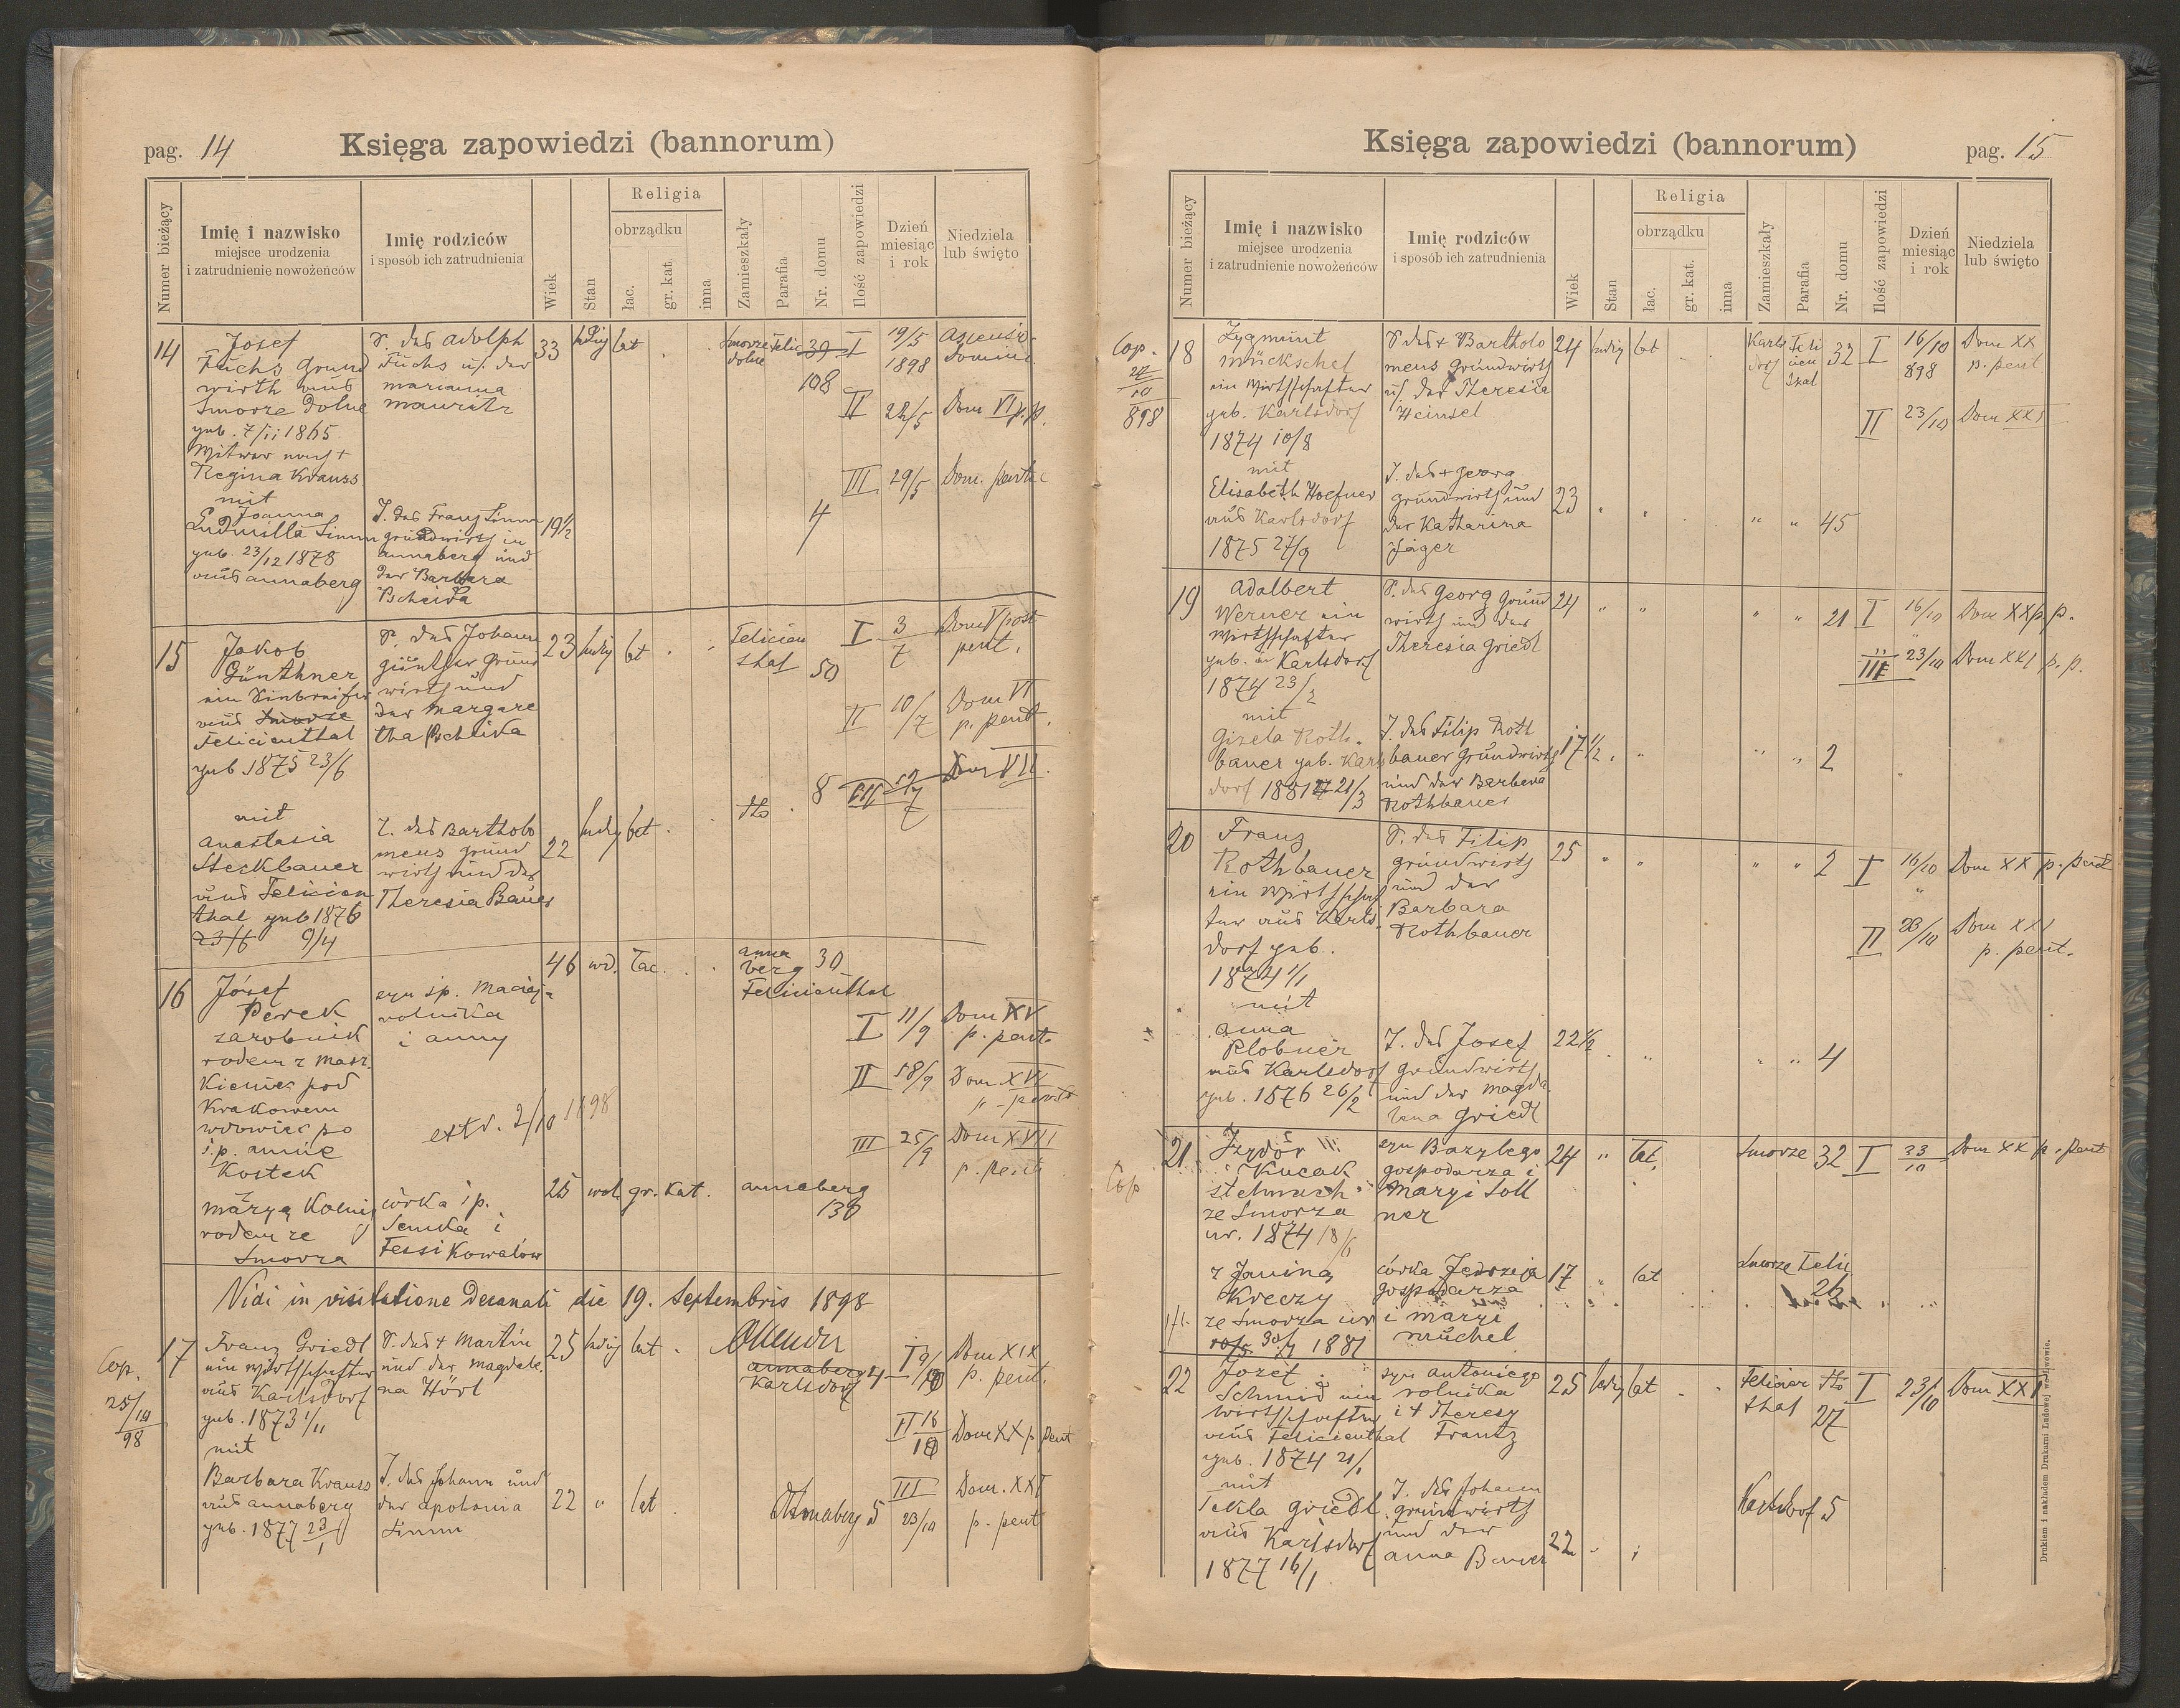 pag. 14
Księga zapowiedzi (bannorum)
Numer bieżący
Imię i nazwisko
miejsce urodzenia
i zatrudnienie nowożeńców
Imię rodziców
i sposób ich zatrudnienia
Wiek
Stan
Religia
obrządku
łac.
gr. kat.
inna
Zamieszkały
Parafia
Nr. domu
Ilość zapowiedzi
Dzień
miesiąc
i rok
Niedziela
lub święto
14
Josef
Fuchs Grund
wirth aus
Smorze dolne
geb. 7/11 1865
Witwer nach +
Regina Krauss
mit
Joanna
Ludmilla Simm
geb. 23/12 1878
aus Annaberg
S. des Adolph
Fuchs u. der
Marianna
Mauritz
T. des Franz Simm
Grundwirth in
Annaberg und
der Barbara
Bscheida
33 ledig lat
Smorze Felic
dolne
39
108
4
19½
I 19/5 1898
Domini
II 22/5 Dom VI p. p.
III 29/5 Dom.
15
Jakob
Günthner
ein
aus Smorze
Felicienthal
geb 1875 23/6
mit
Anastasia
Steckbauer
aus Felicien
thal geb 1876
23/6 9/4
S. des Johann
Günther Grund
wirth und
der Margare
tha Bscheida
T. des Bartholo
meus Grund
wirth und der
Theresia Bauer
23 ledig lat
Felicien
thal 50
22 ledig lat
dto 8
I 3/7 Dom V post
pent.
II 10/7 Dom VI
p. pent.
III 17/7 Dom VII.
16
Józef
Perek
zarobnik
rodem z Masz
kienic pod
Krakowem
wdowiec po
ś. p. Annie
Kostek
Marya Kolnij
rodem ze
Smorza
syn śp. Macieja
rolnika
i Anny
extr. 2/10 1898
córka śp.
Senka i
Fessi Kowalów
46 wd. łac.
Anna
berg 30
Felicienthal
25 wol. gr. kat.
Annaberg
130
I 11/9 Dom XV
p. pent.
II 18/9 Dom XVI
p. pent
III 25/9 Dom XVII
p. pent
Vidi in visitatione Decanali die 19. Septembris 1898
Cop.
25/10
98
17
Franz Griedl
ein Wirthschafter
aus Karlsdorf
geb. 1873 1/11
mit
Barbara Krauss
aus Annaberg
geb. 1877 23/1
S. des + Martin
und der Magdale
na Hörl
T. des Johann und
der Apolonia
Simm
25 ledig lat
Annaberg 4
Karlsdorf
22 " lat
Annaberg 5
I 9/10 Dom XIX
p. pent.
II 16/10 Dom XX p pent
III 23/10 Dom. XXI
p. pent
Księga zapowiedzi (bannorum)
pag. 15
Numer bieżący
Imię i nazwisko
miejsce urodzenia
i zatrudnienie nowożeńców
Imię rodziców
i sposób ich zatrudnienia
Wiek
Stan
Religia
obrządku
łac.
gr. kat.
inna
Zamieszkały
Parafia
Nr. domu
Ilość zapowiedzi
Dzień
miesiąc
i rok
Niedziela
lub święto
Cop.
898
18
Zygmunt
Mückschel
ein Wirthschafter
geb. Karlsdorf
1874 10/8
mit
Elisabeth Hoefner
aus Karlsdorf
1875 27/9
S. des + Bartholo
meus Grundwirth
u. der Theresia
Heinsel
T. des + Georg
Grundwirth und
der Katharina
Jäger
24 ledig lat
Karls
dorf
Feli
cien
thal
32
23 " " " " 45
I 16/10 898 Dom XX
p. pent.
II 23/10 Dom XXI
19
Adalbert
Werner ein
Wirthschafter
geb. in Karlsdorf
1874 23/2
mit
Gisela Roth-
bauer geb. Karls
dorf 1881 21/3
S. des Georg Grund
wirth und der
Theresia Griedl
T. des Filip Roth
bauer Grundwirth
und der Barbara
Rothbauer
24 " " " " 21
17½ " " " 2
I 16/10 Dom XX p. p.
II 23/10 Dom XXI p. p.
20
Franz
Rothbauer
ein Wirthschaf
ter aus Karls
dorf geb.
1874 1/1
mit
Anna
Klobner
aus Karlsdorf
geb. 1876 26/2
S. des Filip
Grundwirth
und der
Barbara
Rothbauer
T. des Josef
Grundwirth
und der Magda
lena Griedl
25 " " " " 2
22½ " " " 4
I 16/10 Dom XX p. pent
II 23/10 Dom XXI
p. pent.
21
Cop
Izydor
Kucak
stelmach
ze Smorza
ur. 1874 18/6
z Janiną
Kreczy
ze Smorza ur
1881
syn Bazylego
gospodarza i
Maryi Soll
ner
córka Jędrzeja
gospodarza
i Maryi
Müchel
24 " łac.
Smorze 32
17 " lat
Smorze Felic
26
I 23/10 Dom XX p. pent
22
Jozef
Schmid ein
Wirthschafter
aus Felicienthal
geb. 1874 21/1
mit
Tekla Griedl
aus Karlsdorf
1877 16/1
syn Antoniego
rolnika
i + Theresy
Frantz
T. des Johann
Grundwirth
und der
Anna Bauer
25 ledig lat
Felicien
thal
dto
27
22
Karlsdorf 5
I 23/10 Dom XXI
Drukiem i nakładem Drukarni Ludowej we Lwowie.